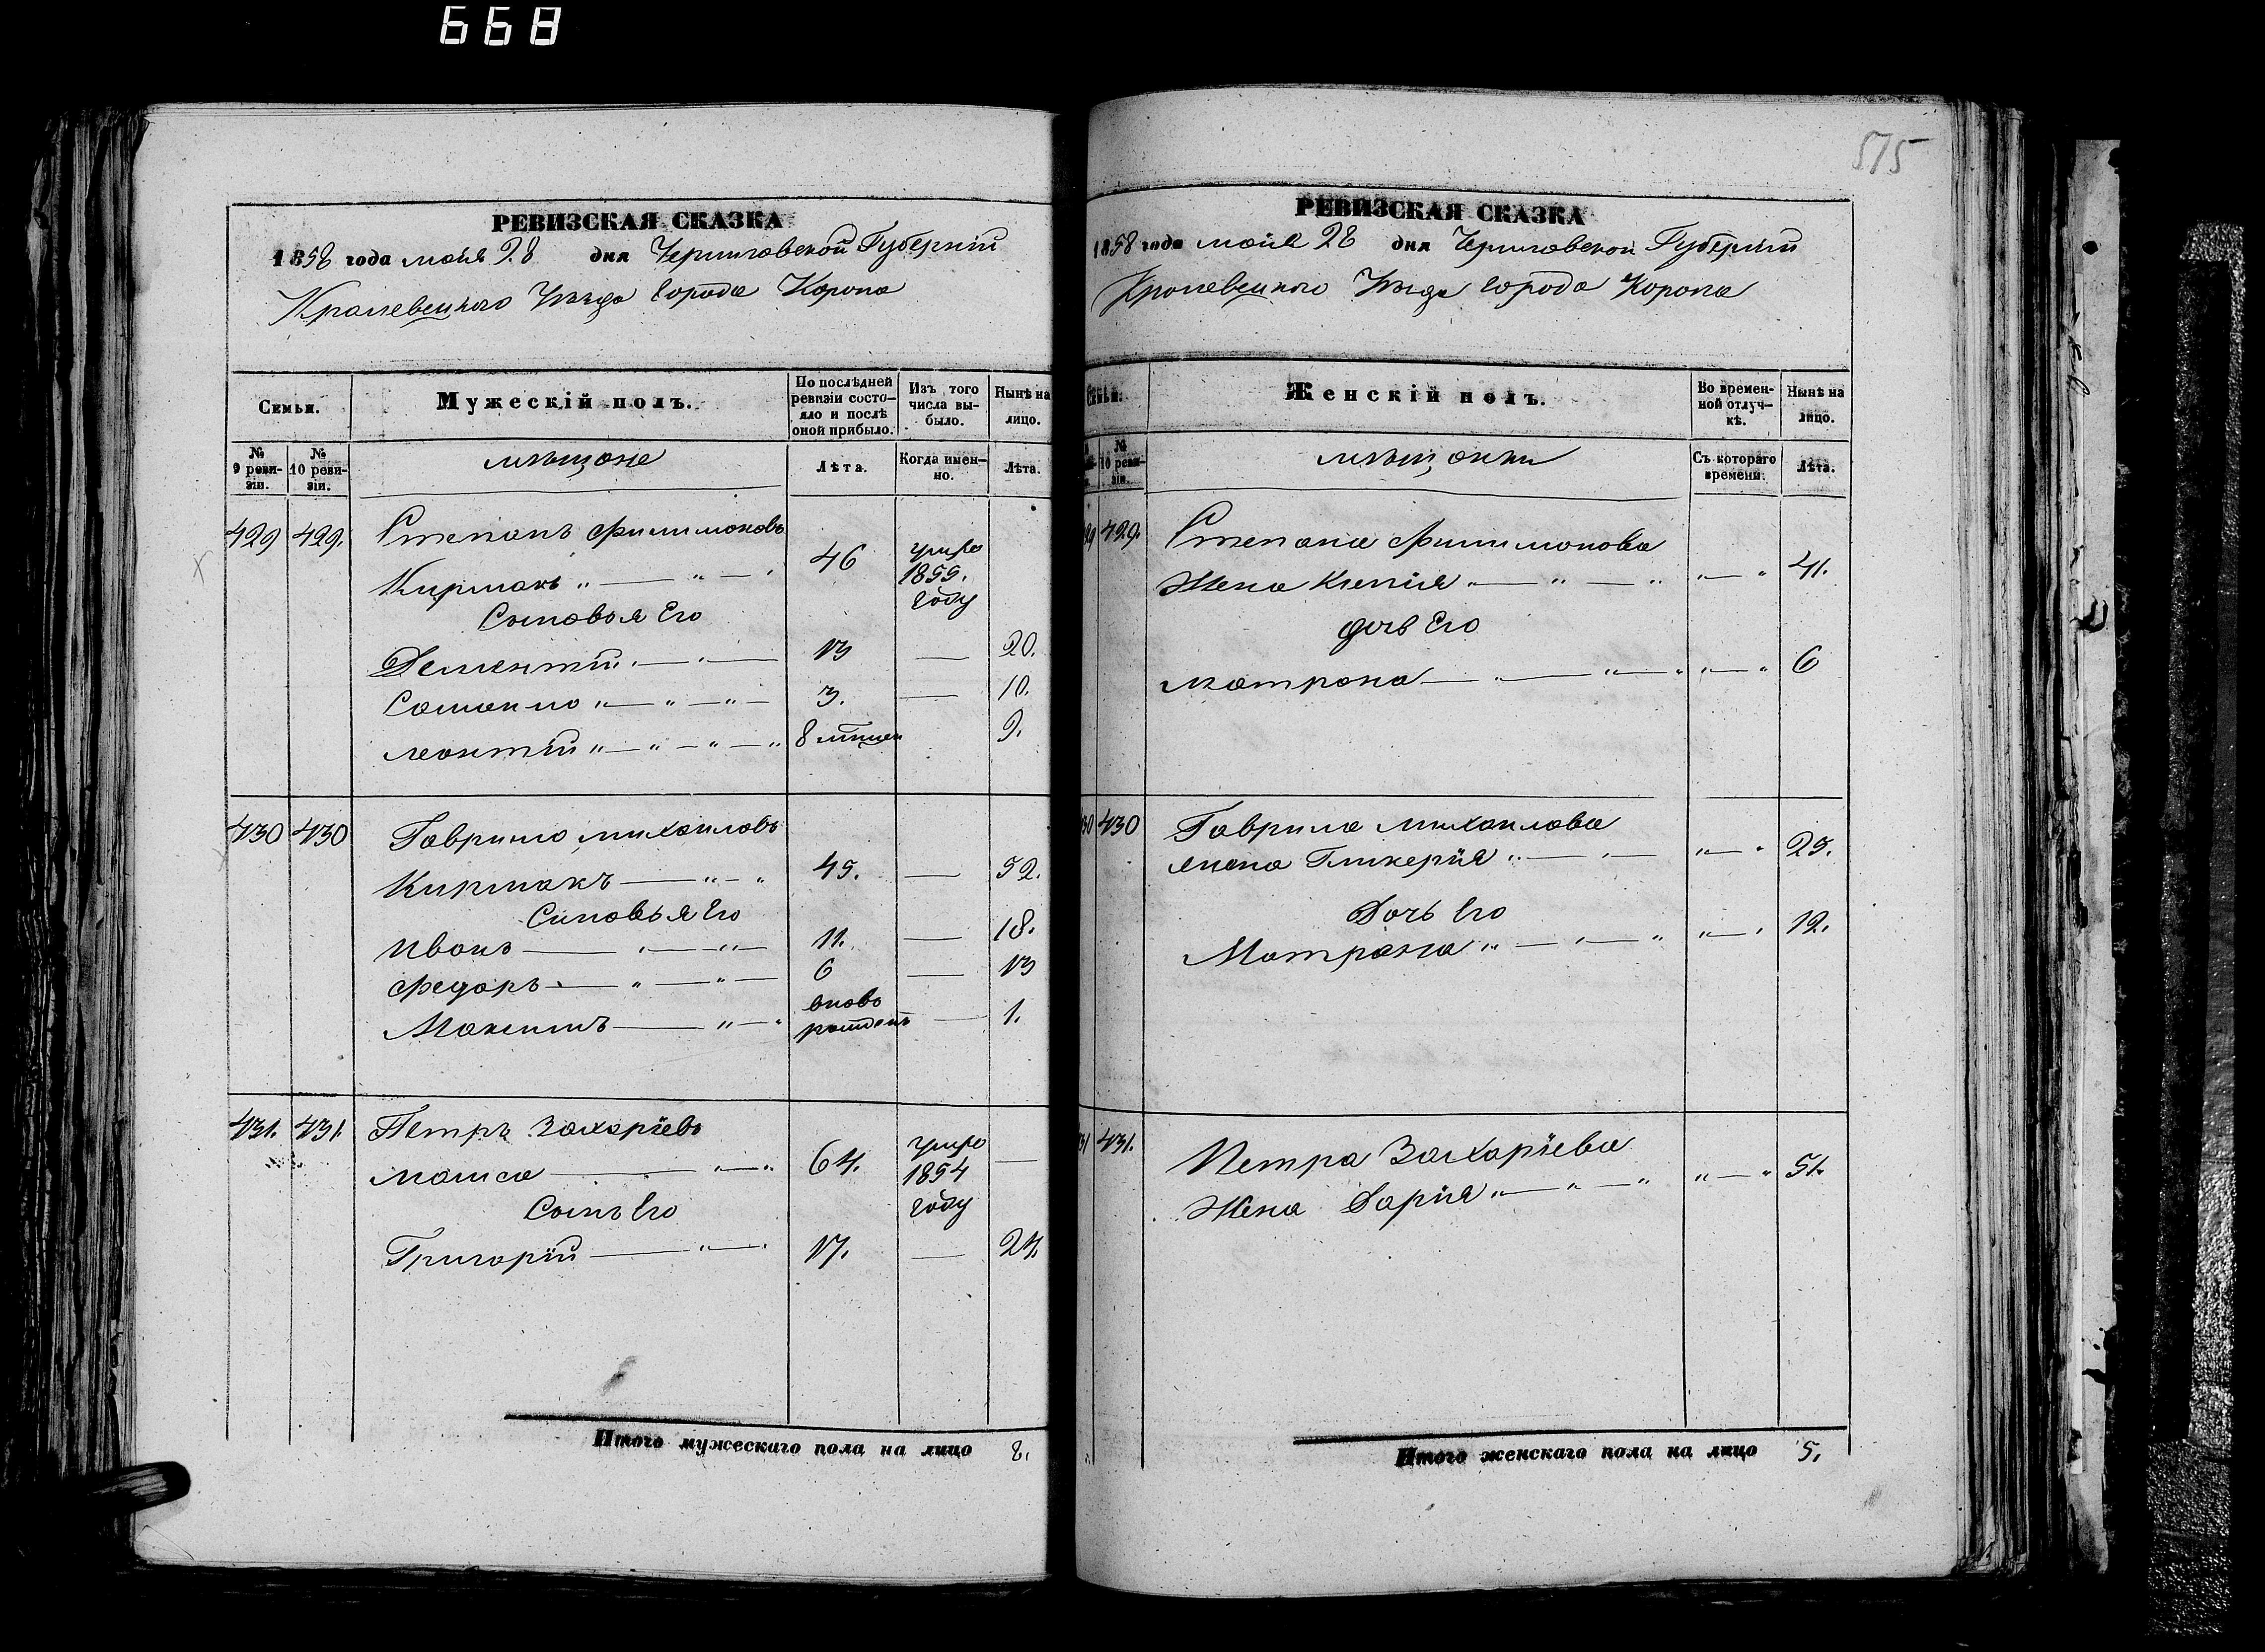 668
575
РЕВИЗСКАЯ СКАЗКА
1858 года мая 28 дня Черниговской Губерніи
Кролевецкого Уѣзда Города Коропа
Семьи.
Мужескій полъ.
По послѣдней ревизіи состояло и послѣ оной прибыло.
Изъ того числа выбыло.
Нынѣ на лицо.
№ 9 ревизіи.
№ 10 ревизіи.
мѣщане
Лѣта.
Когда именно.
Лѣта.
429 429. Степанъ Филимоновъ
Кирмакъ „ — „ — 46 умре 1855. году
Сыновья Его
Дементій — „ — 13 — 20.
Самойло „ — „ — „ — 3. — 10.
Леонтій „ — „ — „ — „ 8 9.
430 430 Гаврило Михаиловъ
Кирмакъ — „ — „ 45. — 52.
Синовья Его
Иванъ — „ — „ — 11. — 18.
Федоръ — „ — „ — 6 — 13
Максимъ — „ — „ вновь рожденъ — 1.
431. 431. Петръ Захаріевъ
— „ — „ 64. умре 1854 году —
Сынъ Его
Григорій — „ — „ 17. — 24.
Итого мужескаго пола на лицо 8.
РЕВИЗСКАЯ СКАЗКА
1858 года мая 28 дня Черниговской Губерніи
Кролевецкого Уѣзда Города Коропа
Семьи.
Женскій полъ.
Во временной отлучкѣ.
Нынѣ на лицо.
№ 10 ревизіи.
мѣщанки
Съ котораго времени.
Лѣта.
29 429. Степана Филимонова
Жена Ксенія „ — „ — „ „ — „ 41.
дочь Его
Матрона — „ — „ — „ „ — „ 6
30 430 Гаврила Михаилова
жена Гликерія „ — „ — „ — „ 25.
Дочь Его
Матрона „ — „ — „ „ — „ 12.
31 431. Петра Захаріева
Жена Дарія „ — „ — „ „ — „ 51.
Итого женскаго пола на лицо 5.